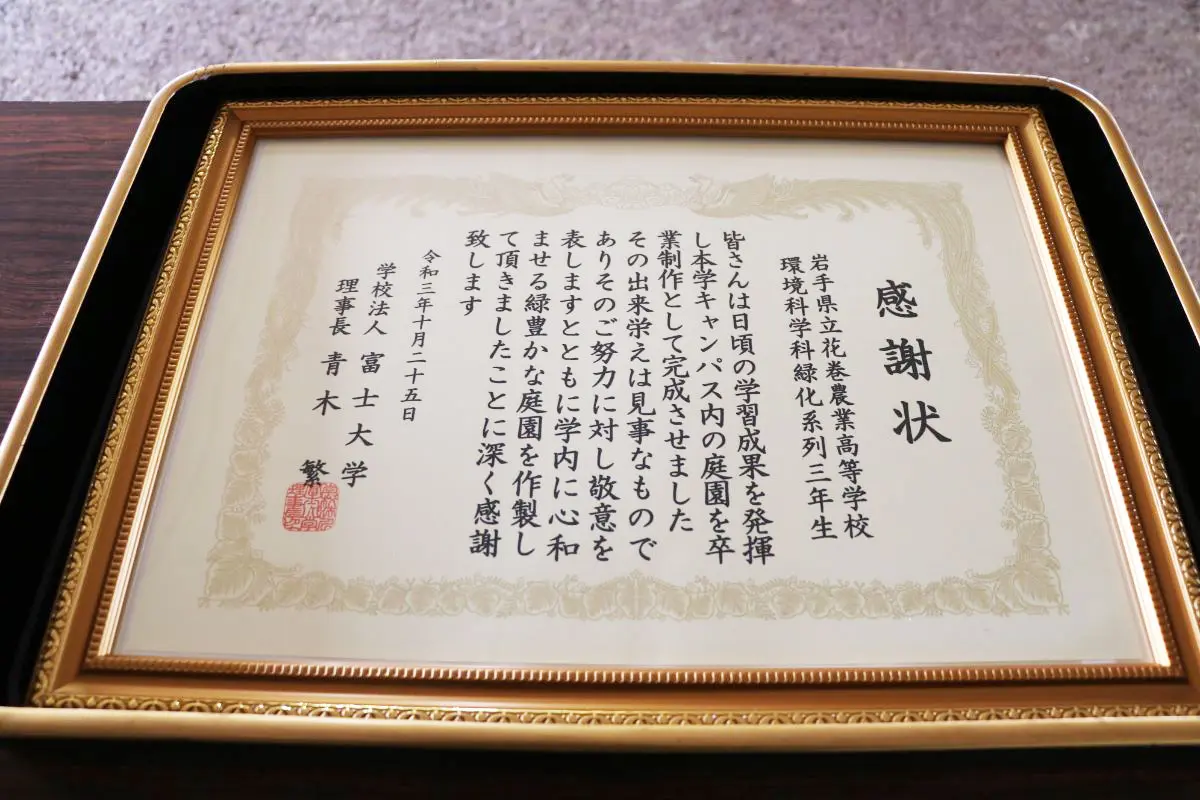 感謝状
岩手県立花巻農業高等学校
環境科学科緑化系列三年生
皆さんは日頃の学習成果を発揮
し本学キャンパス内の庭園を卒
業制作として完成させました
その出来栄えは見事なもので
ありそのご努力に対し敬意を
表しますとともに学内に心和
ませる緑豊かな庭園を作製し
て頂きましたことに深く感謝
致します
令和三年十月二十五日
学校法人 富士大学
理事長 青木 繁